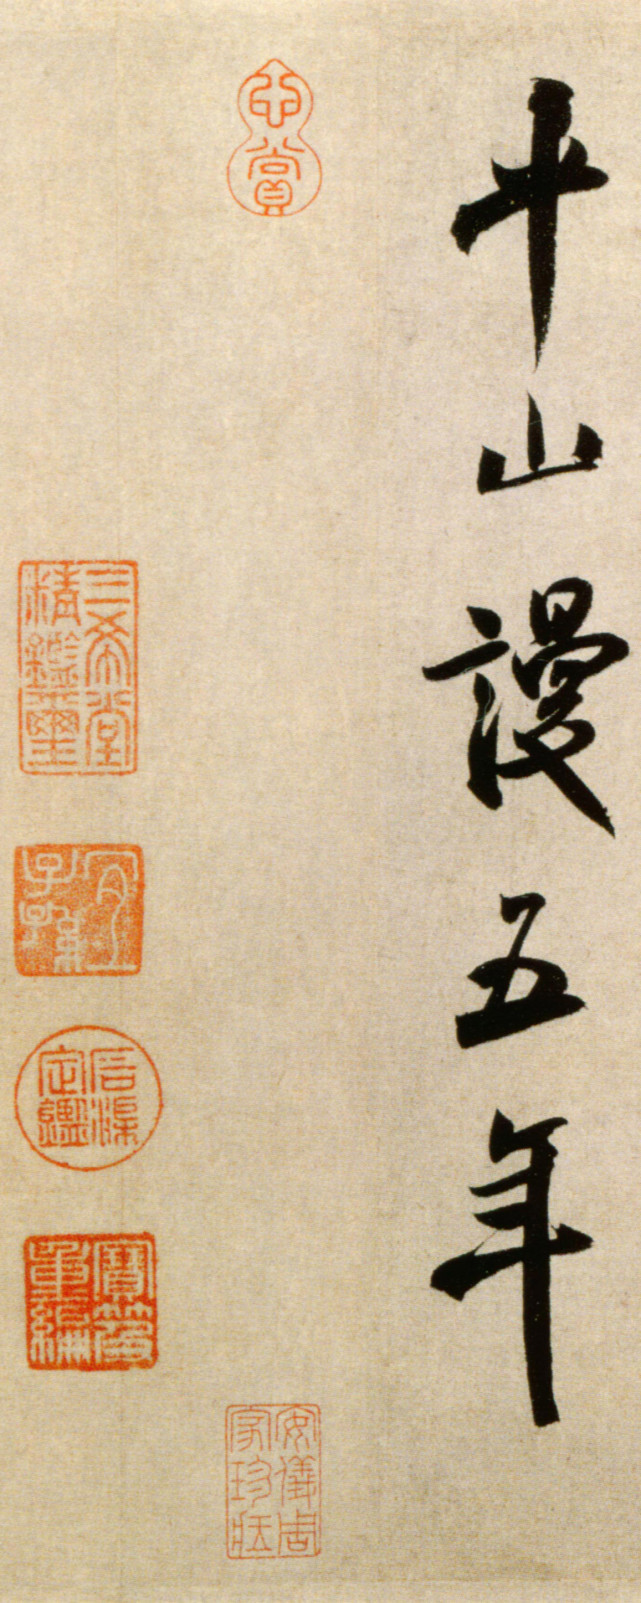 十山謾五年
心賞
安儀周家珍藏
三希堂精鑑璽
宜子孫
石渠定鑑
寶笈重編